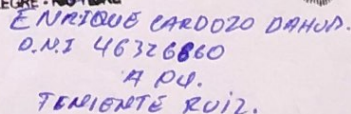 ENRIQUE CARDOZO DAHUD.
D.N.I 46326860
A PU.
TENIENTE RUIZ.